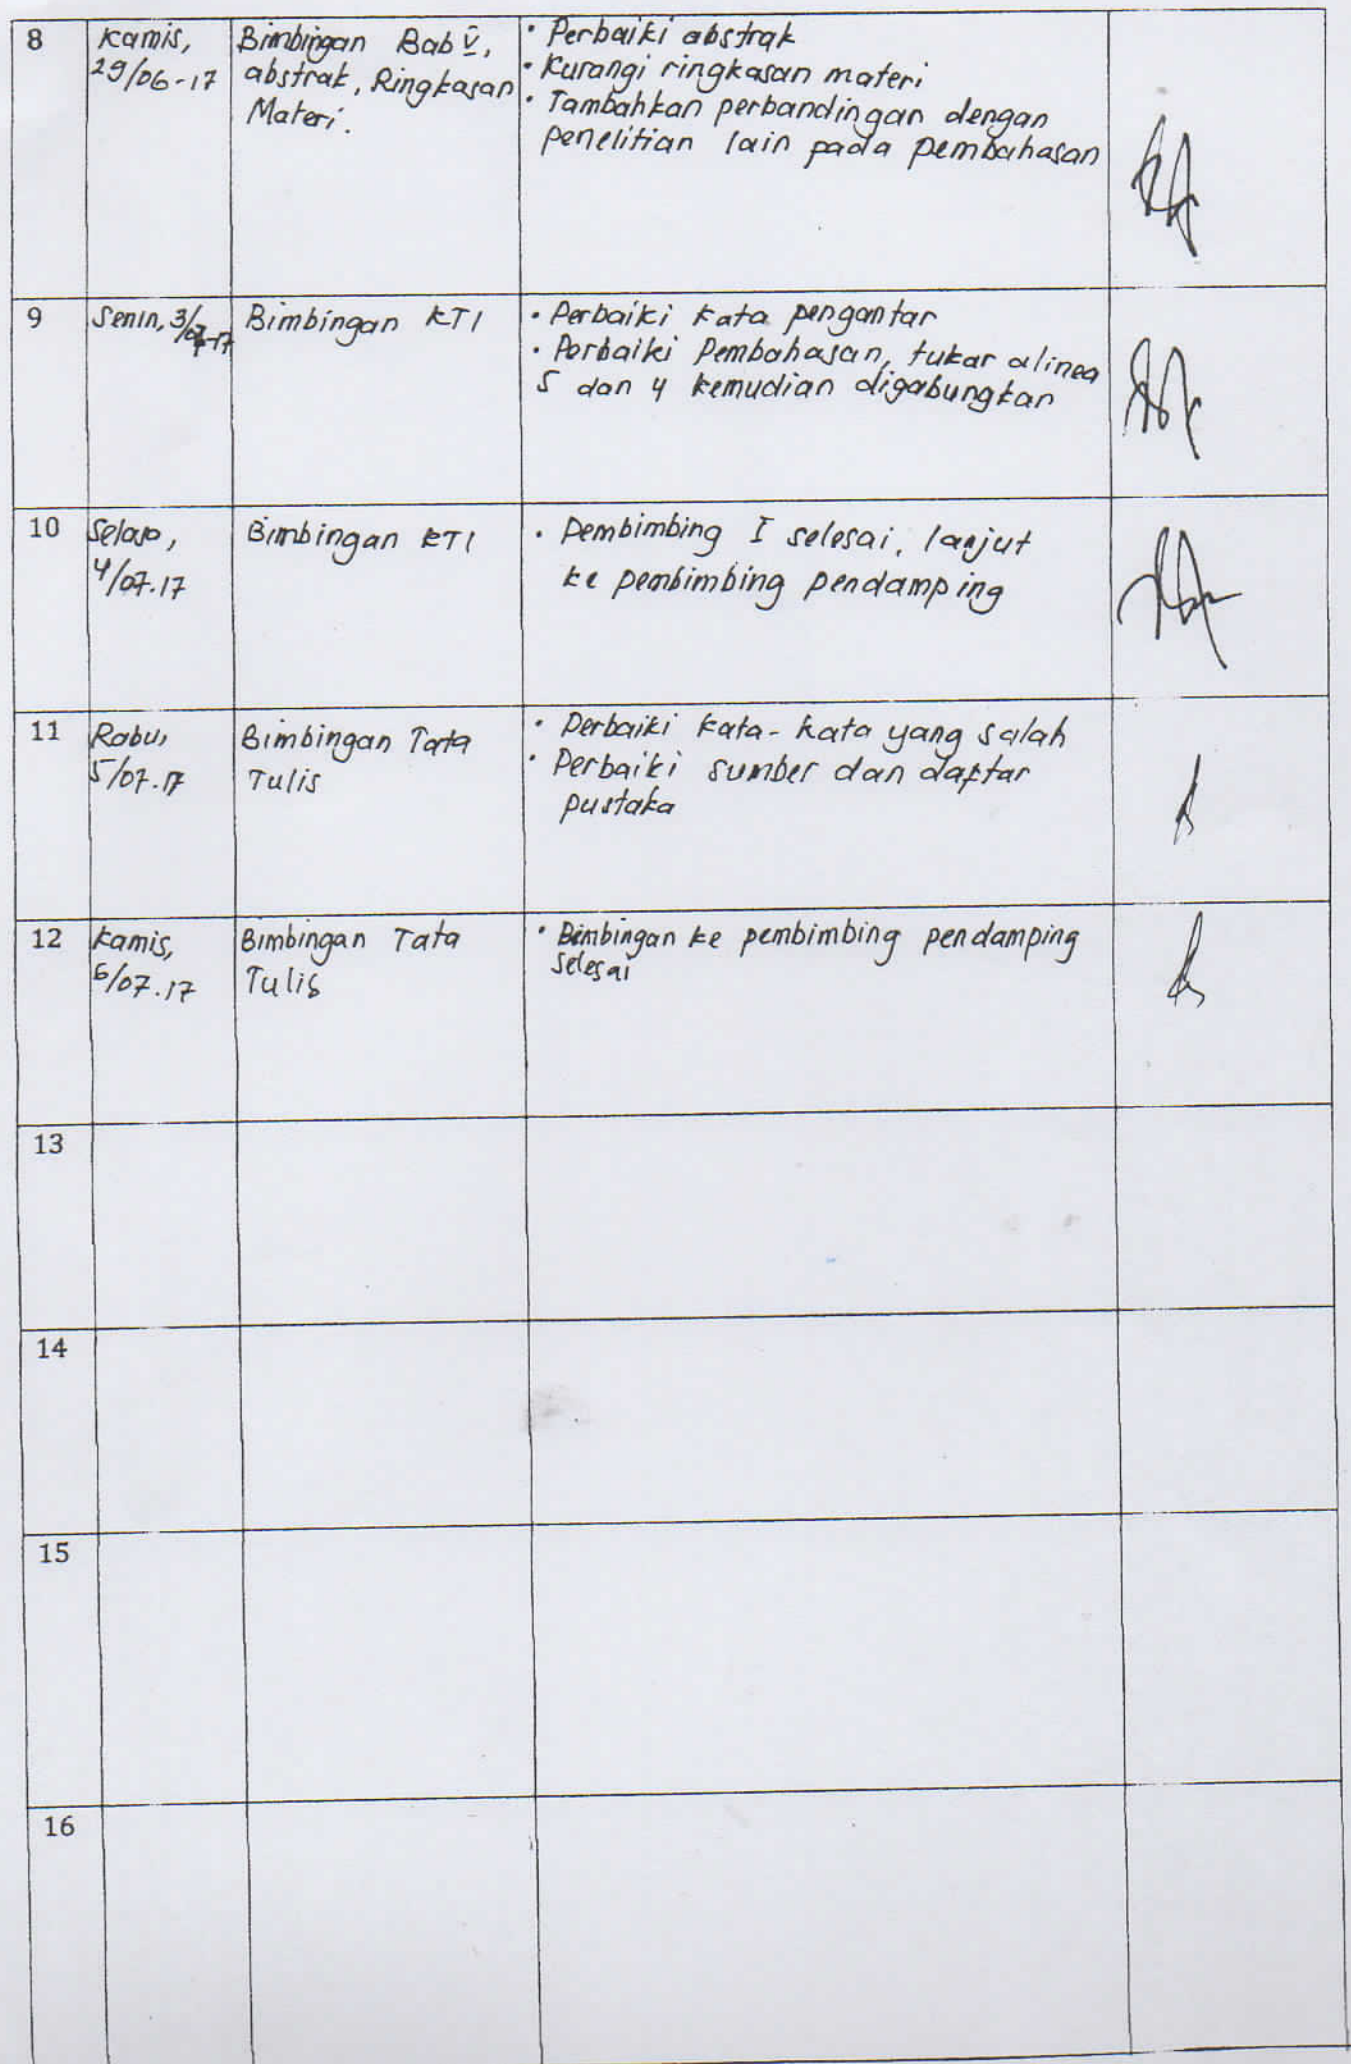 8
Kamis,
29/06-17
Bimbingan Bab V,
abstrak, Ringkasan
Materi.
• Perbaiki abstrak
• Kurangi ringkasan materi
• Tambahkan perbandingan dengan
penelitian lain pada pembahasan
9
Senin, 3/07-17
Bimbingan KTI
• Perbaiki Kata pengantar
• Perbaiki Pembahasan, tukar alinea
5 dan 4 kemudian digabungkan
10
Selasa,
4/07.17
Bimbingan KTI
• Pembimbing I selesai, lanjut
ke pembimbing pendamping
11
Rabu,
5/07.17
Bimbingan Tata
Tulis
• Perbaiki kata-kata yang salah
• Perbaiki sumber dan daftar
pustaka
12
Kamis,
6/07.17
Bimbingan Tata
Tulis
• Bimbingan ke pembimbing pendamping
selesai
13
14
15
16